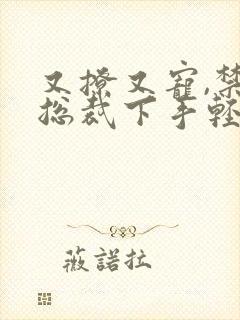 又撩又寵,禁
总裁下手輕
薇諾拉